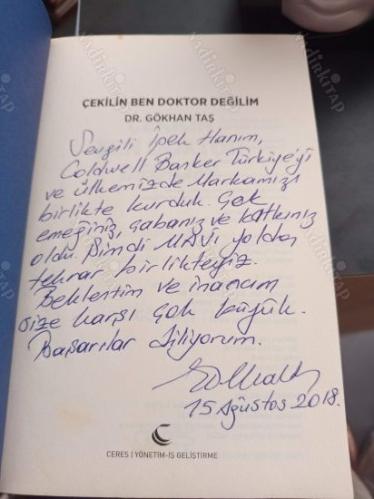 ÇEKİLİN BEN DOKTOR DEĞİLİM
DR. GÖKHAN TAŞ
Sevgili İpek Hanım,
Coldwell Banker Türkiye'yi
ve ülkemizde Markamızı
birlikte kurduk. Çok
emeğiniz, çabanız ve katkınız
oldu. Şimdi MAVİ yolda
tekrar birlikteyiz.
Beklentim ve inancım
size karşı çok büyük.
Başarılar diliyorum.
15 Ağustos 2018.
CERES | YÖNETİM-İŞ GELİŞTİRME
nadirkitap